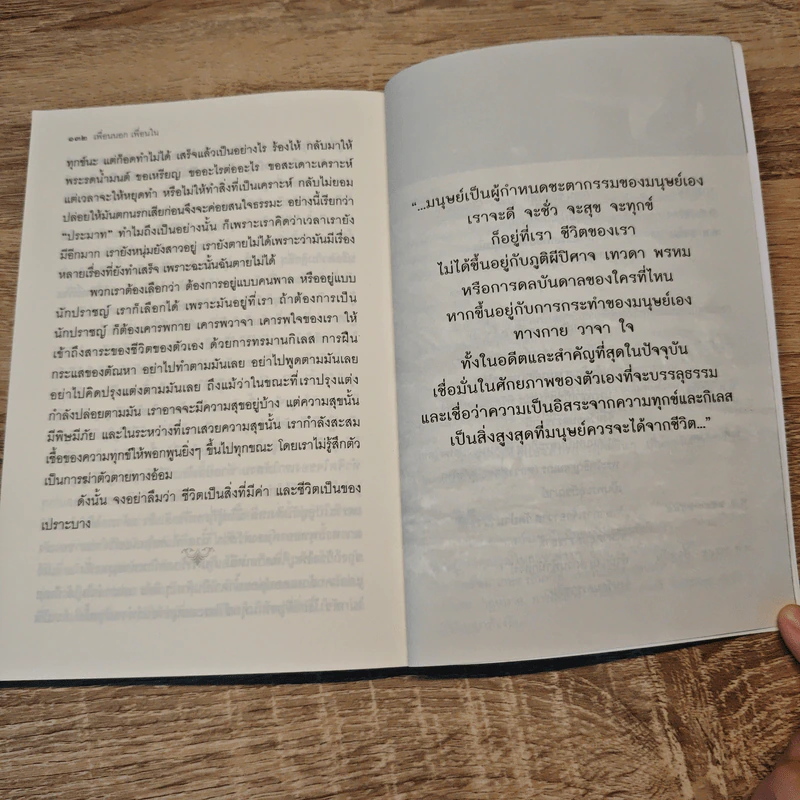 ๑๓๒ เพื่อนนอก เพื่อนใน
ทุกข์นะ แต่ก็อดทำไม่ได้ เสร็จแล้วเป็นอย่างไร ร้องไห้ กลับมาให้
พระรดน้ำมนต์ ขอเหรียญ ขออะไรต่ออะไร ขอสะเดาะเคราะห์
แต่เวลาจะให้หยุดทำ หรือไม่ให้ทำสิ่งที่เป็นเคราะห์ กลับไม่ยอม
ปล่อยให้มันตกนรกเสียก่อนจึงจะค่อยสนใจธรรมะ อย่างนี้เรียกว่า
“ประมาท” ทำไมถึงเป็นอย่างนั้น ก็เพราะเราคิดว่าเวลาเรายัง
มีอีกมาก เรายังหนุ่มยังสาวอยู่ เรายังตายไม่ได้เพราะว่ามันมีเรื่อง
หลายเรื่องที่ยังทำเสร็จ เพราะฉะนั้นฉันตายไม่ได้
พวกเราต้องเลือกว่า ต้องการอยู่แบบคนพาล หรืออยู่แบบ
นักปราชญ์ เราก็เลือกได้ เพราะมันอยู่ที่เรา ถ้าต้องการเป็น
นักปราชญ์ ก็ต้องเคารพกาย เคารพวาจา เคารพใจของเรา ให้
เข้าถึงสาระของชีวิตของตัวเอง ด้วยการทรมานกิเลส การฝืน
กระแสของตัณหา อย่าไปทำตามมันเลย อย่าไปพูดตามมันเลย
อย่าไปคิดปรุงแต่งตามมันเลย ถึงแม้ว่าในขณะที่เราปรุงแต่ง
กำลังปล่อยตามมัน เราอาจจะมีความสุขอยู่บ้าง แต่ความสุขนั้น
มีพิษมีภัย และในระหว่างที่เราเสวยความสุขนั้น เรากำลังสะสม
เชื้อของความทุกข์ให้พอกพูนยิ่งๆ ขึ้นไปทุกขณะ โดยเราไม่รู้สึกตัว
เป็นการฆ่าตัวตายทางอ้อม
ดังนั้น จงอย่าลืมว่า ชีวิตเป็นสิ่งที่มีค่า และชีวิตเป็นของ
เปราะบาง
“...มนุษย์เป็นผู้กำหนดชะตากรรมของมนุษย์เอง
เราจะดี จะชั่ว จะสุข จะทุกข์
ก็อยู่ที่เรา ชีวิตของเรา
ไม่ได้ขึ้นอยู่กับภูติผีปีศาจ เทวดา พรหม
หรือการดลบันดาลของใครที่ไหน
หากขึ้นอยู่กับการกระทำของมนุษย์เอง
ทางกาย วาจา ใจ
ทั้งในอดีตและสำคัญที่สุดในปัจจุบัน
เชื่อมั่นในศักยภาพของตัวเองที่จะบรรลุธรรม
และเชื่อว่าความเป็นอิสระจากความทุกข์และกิเลส
เป็นสิ่งสูงสุดที่มนุษย์ควรจะได้จากชีวิต...”